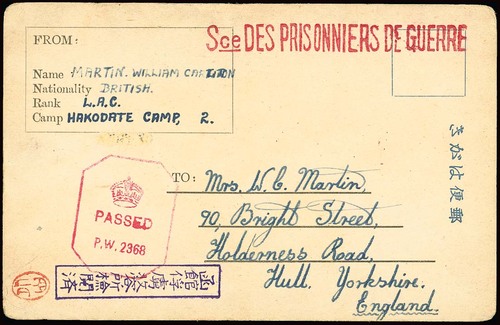 FROM:
Sce DES PRISONNIERS DE GUERRE
Name MARTIN. WILLIAM
Nationality BRITISH.
Rank L.A.C.
Camp HAKODATE CAMP, 2.
きがは便郵
PASSED
P.W. 2368
TO: Mrs. W. C. Martin,
90, Bright Street,
Holderness Road,
Hull, Yorkshire.
England.
函館俘虜収容所検閲済